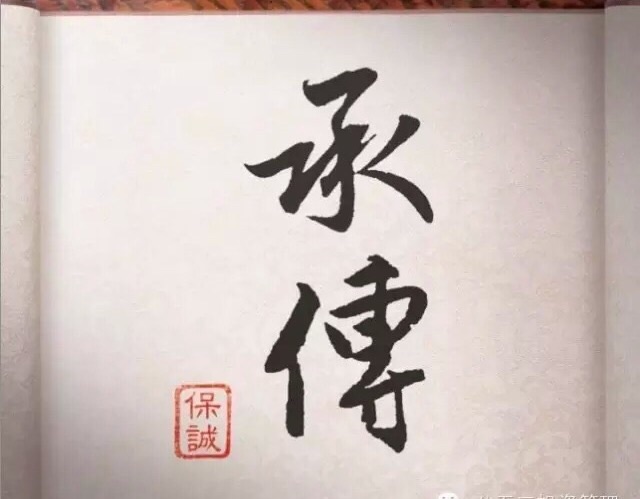 承
傳
保
誠